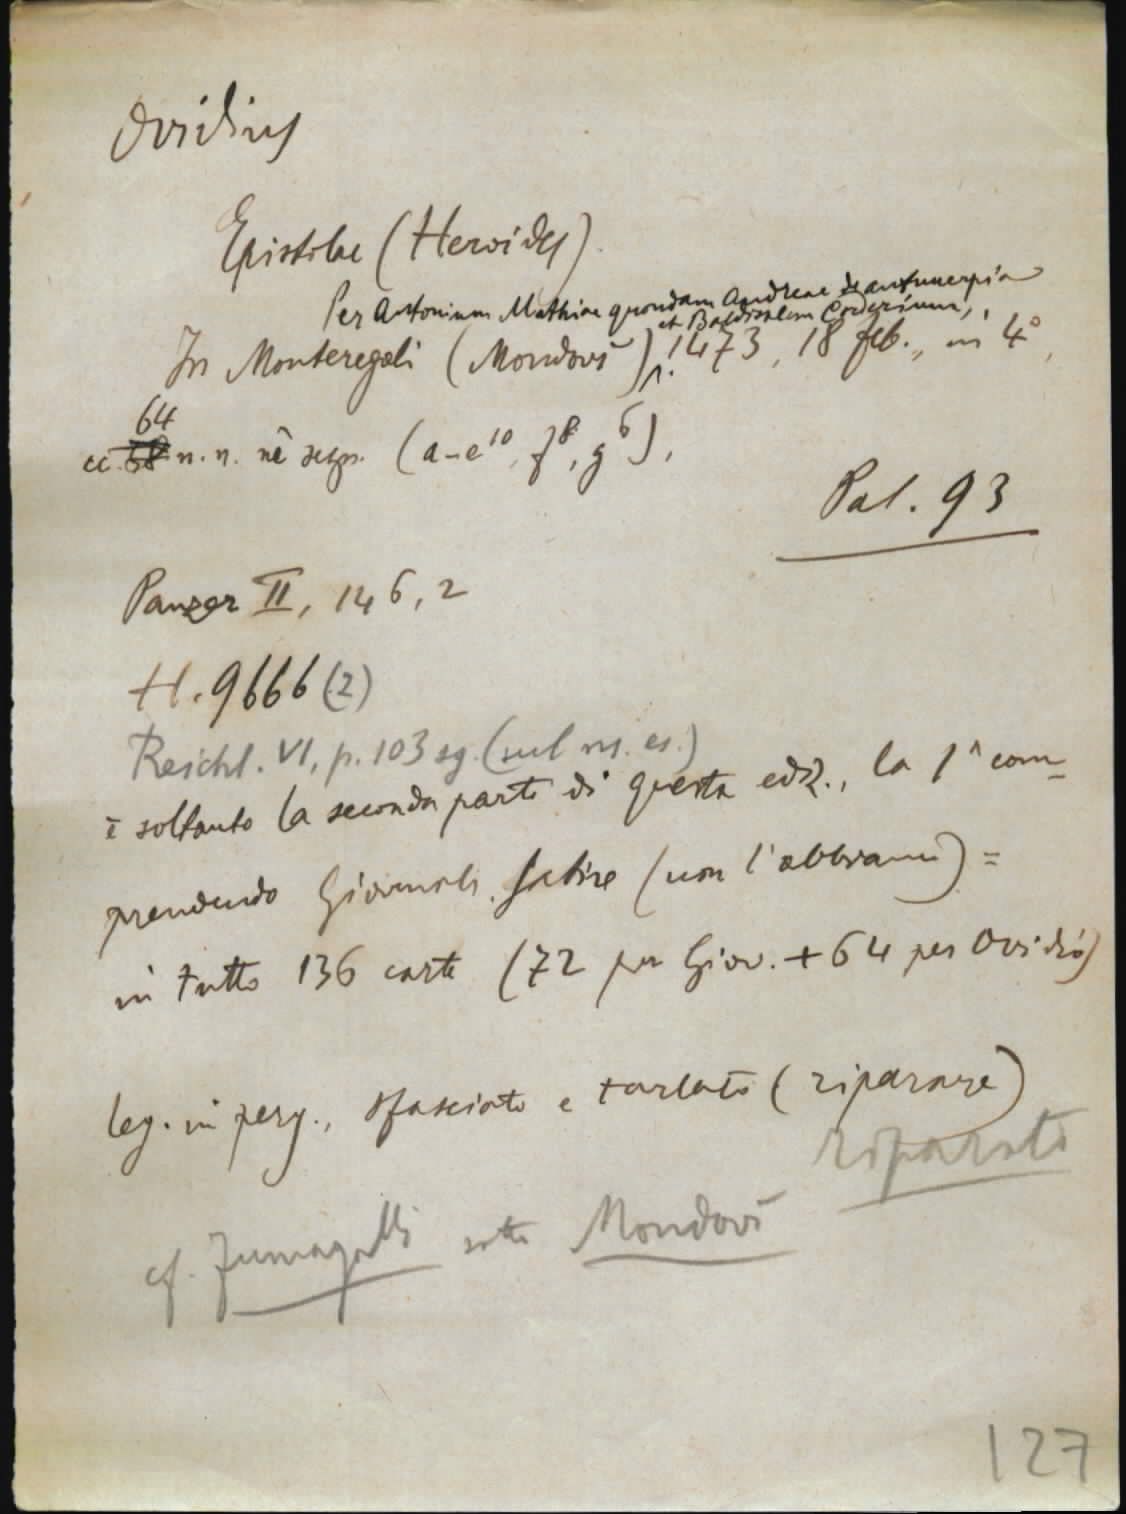 Ovidius
Epistolae (Heroides).
Per Antonium Mathiae quondam Andreae de antuuerpia
et Baldisalem Corderium,
In Monteregali (Mondovì) 1473, 18 feb., in 4°,
64
cc. 68 n. n. nè segn. (a-e10, f8, g6),
Pal. 93
Panzer II, 146, 2
H. 9666 (2)
Reichl. VI, p. 103 sg. (sul ns. es.)
È soltanto la seconda parte di questa ediz., la 1ª com-
prendendo Giovenale, Satire (non l'abbiamo) =
in tutto 136 carte (72 per Giov. + 64 per Ovidio)
leg. in perg., sfasciato e tarlato (riparare)
riparato
cf. Fumagalli sotto Mondovì
127